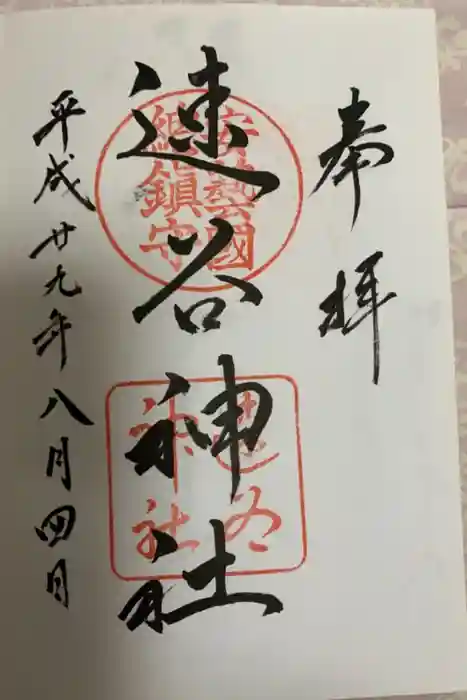 奉拝
速谷神社
安藝國
総鎮守
速谷
神社
平成廿九年八月四日